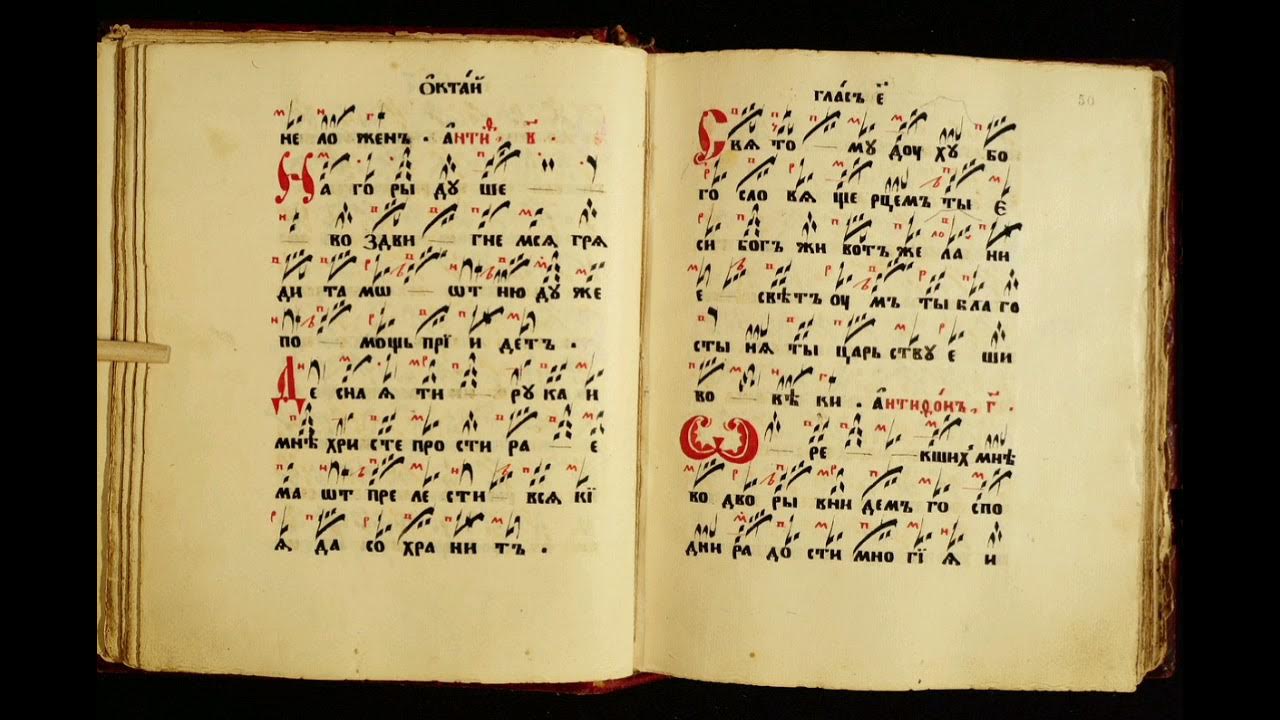 О҆ктай
не ло женъ . а҆нти ѳ в҃ .
На го ры ду ше
во здви гне мся гря
ди та мѡ ѿт ню ду же
по мощь прїи детъ .
Де сная ти рука и
мнѣ христе про сти ра е
ма ѿт преле сти вся кї
я да со хра нитъ .
гла́съ е҃
50
Свя то му доу ху бо
го сло вя ще рцемъ ты є
си богъ жи вотъ же ла ни
е свѣтъ оу мъ ты бла го
сты ня ты царь ству е ши
во вѣ ки . а҆нтифѡ́нъ, г҃ .
Ѡ ре кших мнѣ
во дво ры вни демъ го спо
дни ра до сти мно гї я и